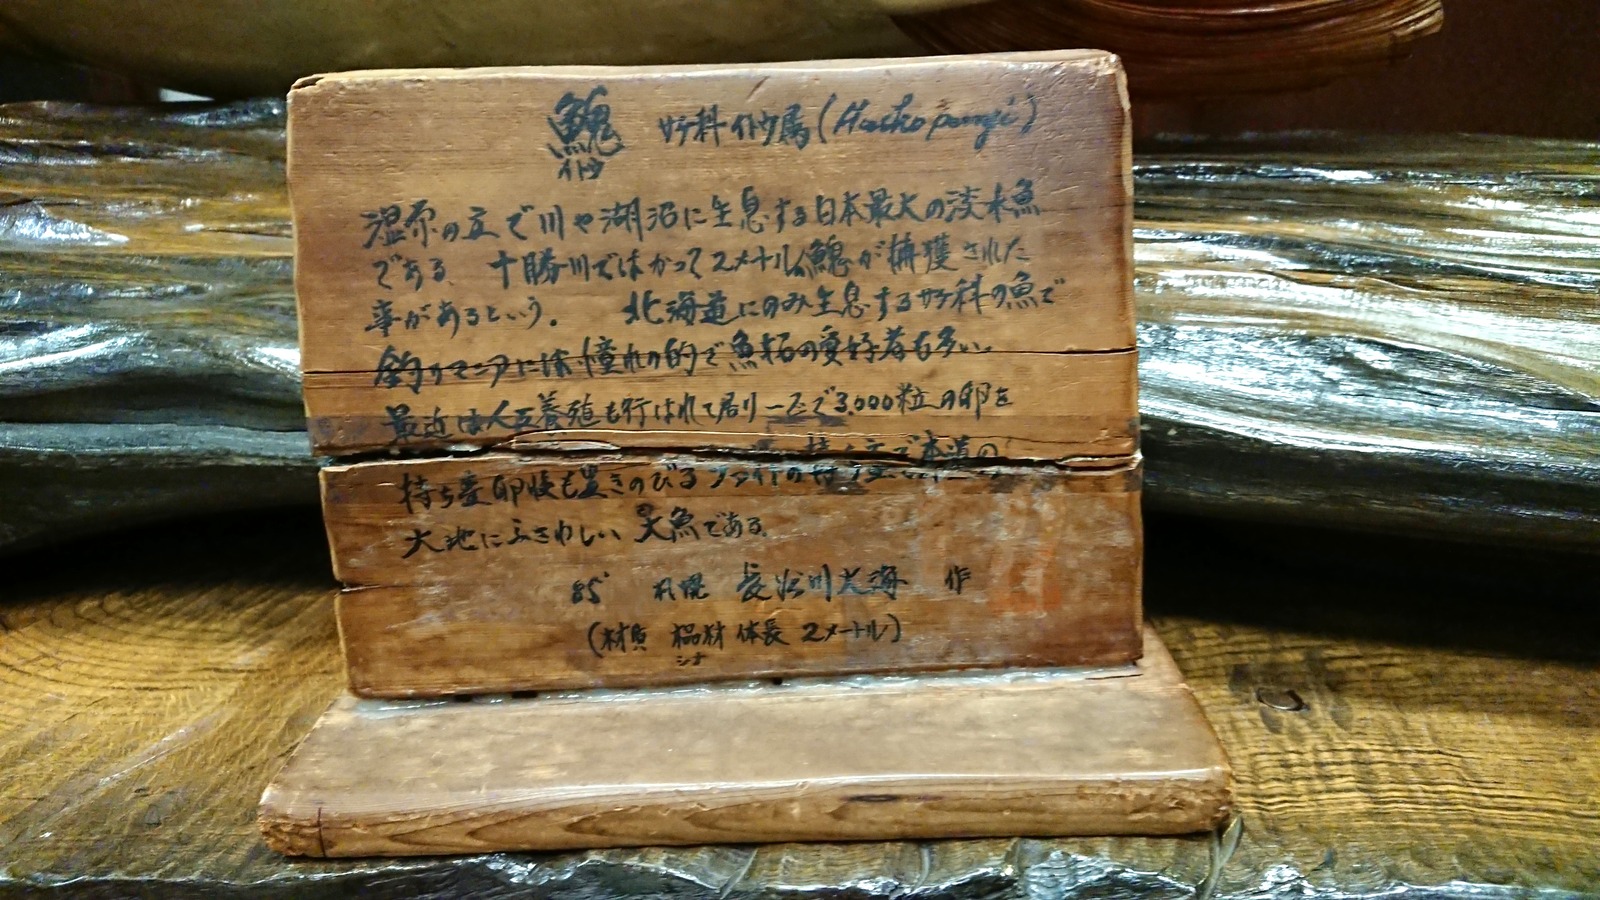 鰉 サケ科イトウ属(Hucho perryi)
イトウ
湿原の立で川や湖沼に生息する日本最大の淡水魚
である。十勝川ではかつて2メートルの鰉が捕獲された
事があるという。 北海道にのみ生息するサケ科の魚で
釣りマニアには憧れの的で魚拓の愛好者も多い。
最近は人工養殖も行はれて居り一匹で3,000粒の卵を
持ち産卵後も生きのびる
大地にふさわしい大魚である。
85' 札幌 長 川大海 作
(材質 榀材 体長 2メートル)
シナ